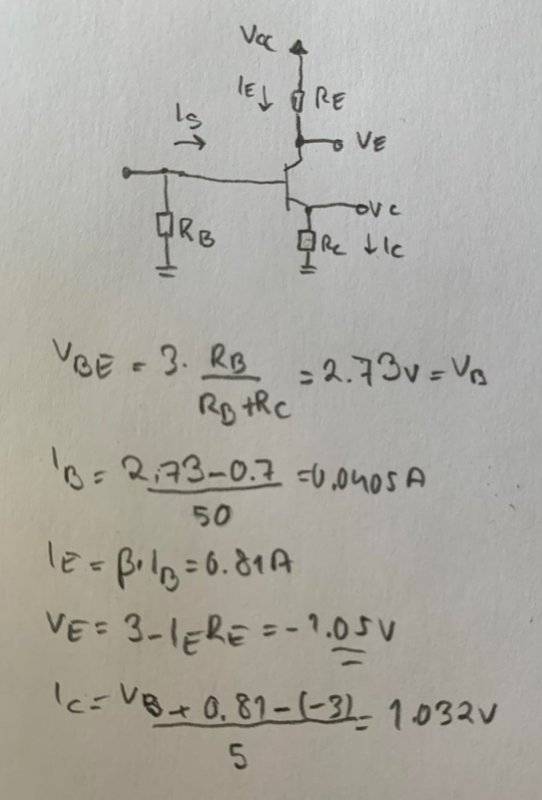 Vcc
IE↓ RE
IS
→ VE
RB
VC
RC ↓IC
VBE = 3. RB / RB+RC = 2.73V = VB
IB = 2.73-0.7 / 50 = 0.0405A
IE = β·IB = 0.81A
VE = 3-IERE = -1.05V
IC = VB + 0.81-(-3) / 5 = 1.032V